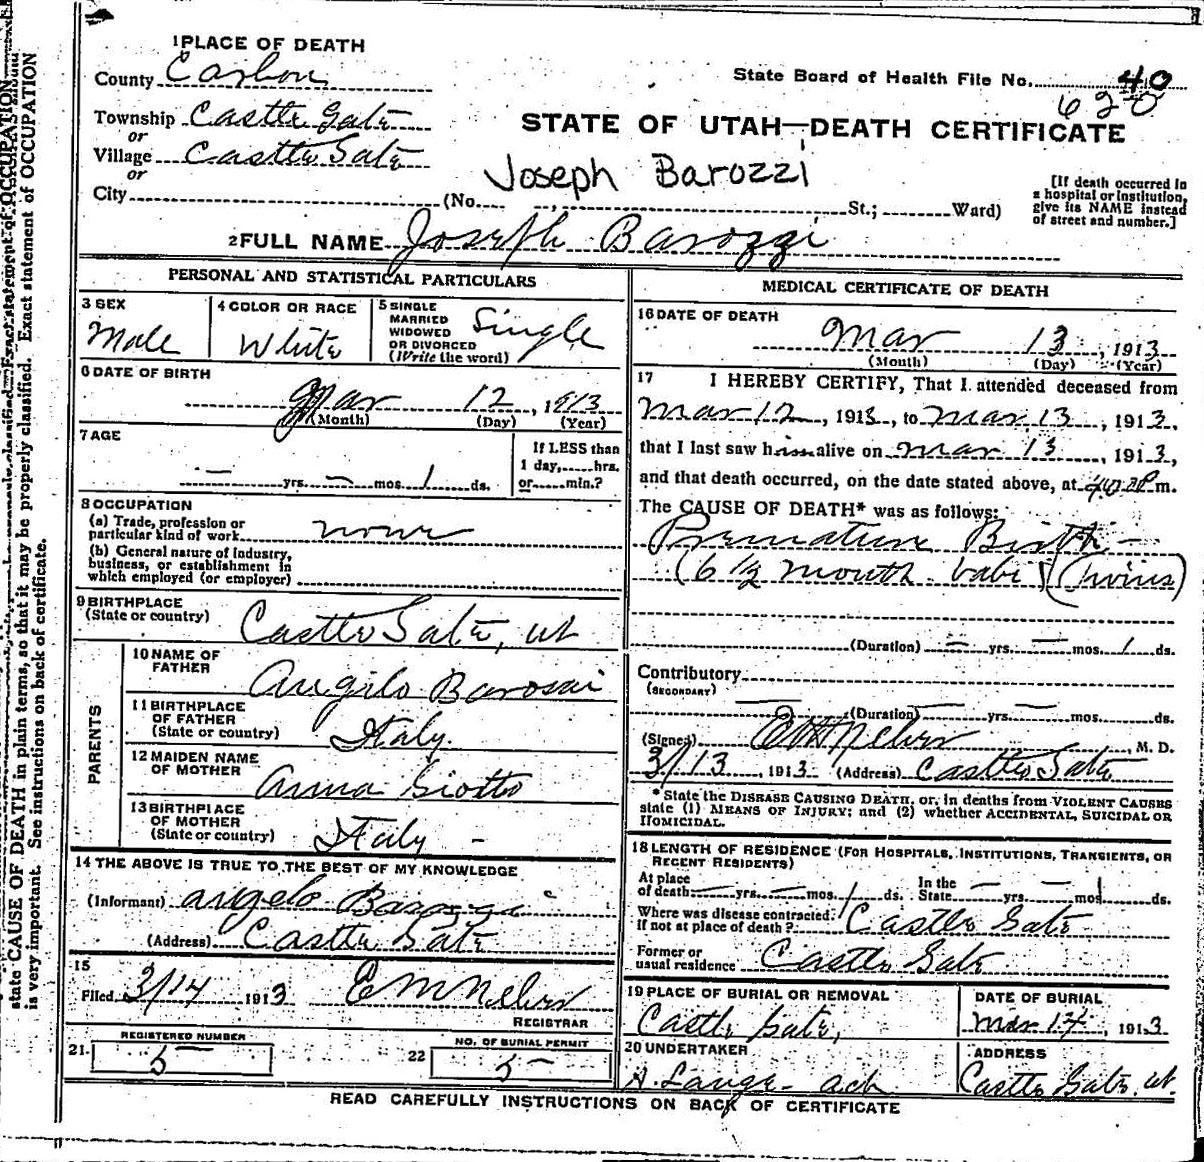 1 PLACE OF DEATH
County Carbon
State Board of Health File No. 40
620
Township Castle Gate
or
Village Castle Gate
or
City
STATE OF UTAH—DEATH CERTIFICATE
Joseph Barozzi
(No. St.; Ward)
[If death occurred in a hospital or institution, give its NAME instead of street and number.]
2 FULL NAME Joseph Barozzi
PERSONAL AND STATISTICAL PARTICULARS
3 SEX
Male
4 COLOR OR RACE
White
5 SINGLE
MARRIED
WIDOWED
OR DIVORCED
(Write the word)
Single
6 DATE OF BIRTH
Mar 12, 1913
(Month) (Day) (Year)
7 AGE
— yrs. — mos. 1 ds.
If LESS than
1 day, hrs.
or min.?
8 OCCUPATION
(a) Trade, profession or
particular kind of work none
(b) General nature of industry,
business, or establishment in
which employed (or employer)
9 BIRTHPLACE
(State or country) Castle Gate, Ut
PARENTS
10 NAME OF
FATHER
Angilo Barossi
11 BIRTHPLACE
OF FATHER
(State or country) Italy.
12 MAIDEN NAME
OF MOTHER
Anna Giotto
13 BIRTHPLACE
OF MOTHER
(State or country) Italy -
14 THE ABOVE IS TRUE TO THE BEST OF MY KNOWLEDGE
(Informant) Angelo
(Address) Castle Gate
15
Filed 3/14 1913
REGISTRAR
REGISTERED NUMBER
21. 5
NO. OF BURIAL PERMIT
22 5
MEDICAL CERTIFICATE OF DEATH
16 DATE OF DEATH
Mar 13, 1913
(Month) (Day) (Year)
17 I HEREBY CERTIFY, That I attended deceased from
Mar 12, 1913, to Mar 13, 1913,
that I last saw him alive on Mar 13, 1913,
and that death occurred, on the date stated above, at m.
The CAUSE OF DEATH* was as follows:
Premature Birth -
(6 1/2 month babe) (Twins)
(Duration) — yrs. — mos. 1 ds.
Contributory
(SECONDARY)
(Duration) yrs. mos. ds.
(Signed) M. D.
3/13, 1913 (Address) Castle Gate
* State the DISEASE CAUSING DEATH, or, in deaths from VIOLENT CAUSES
state (1) MEANS OF INJURY; and (2) whether ACCIDENTAL, SUICIDAL OR
HOMICIDAL.
18 LENGTH OF RESIDENCE (FOR HOSPITALS, INSTITUTIONS, TRANSIENTS, OR
RECENT RESIDENTS)
At place
of death — yrs. — mos. 1 ds. In the
State — yrs. — mos. 1 ds.
Where was disease contracted,
if not at place of death? Castle Gate
Former or
usual residence Castle Gate
19 PLACE OF BURIAL OR REMOVAL
Castle Gate,
DATE OF BURIAL
Mar 14, 1913
20 UNDERTAKER
ADDRESS
Castle Gate, Ut.
READ CAREFULLY INSTRUCTIONS ON BACK OF CERTIFICATE
state CAUSE OF DEATH in plain terms, so that it may be properly classified. Exact statement of OCCUPATION
is very important. See instructions on back of certificate.